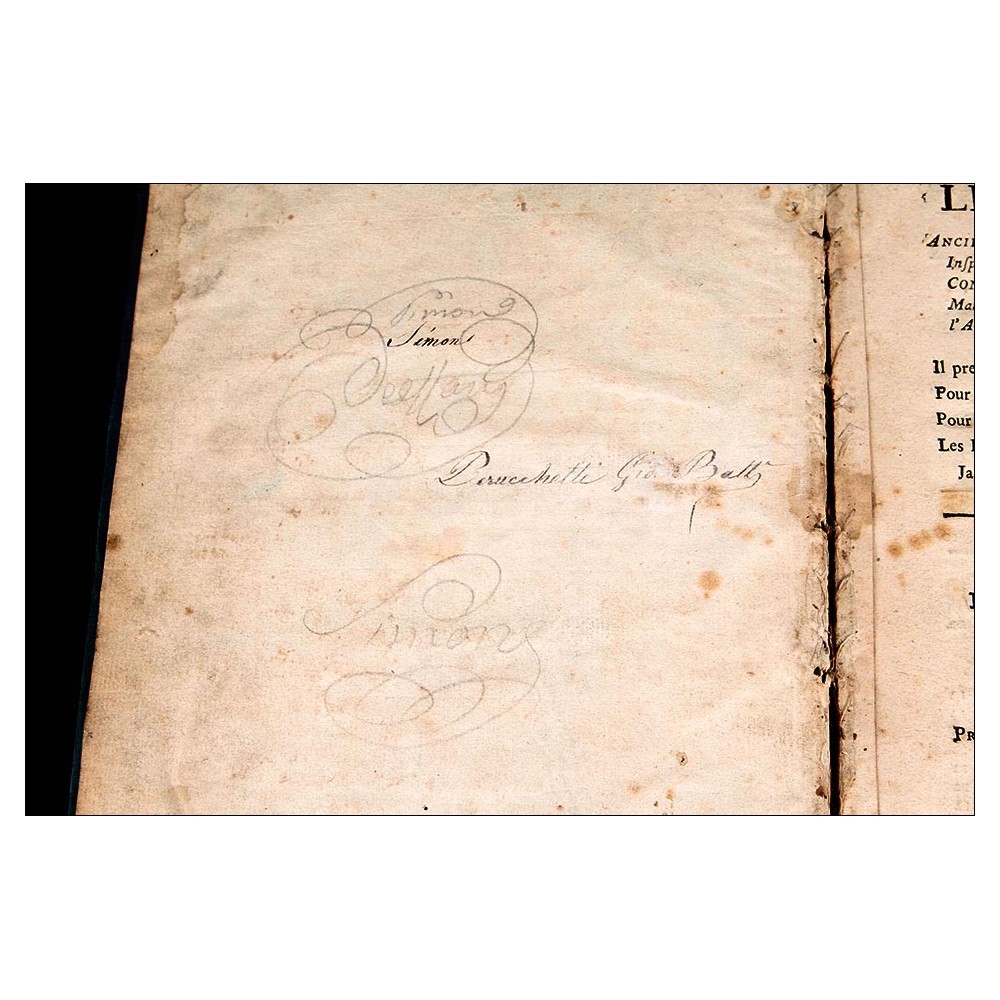 Simond
Simon
Perucchetti Gio Batt.ª
Simond
LE
ANCIE
Insp
CON
Ma
l'A
Il pre
Pour
Pour
Les
Ja
PR